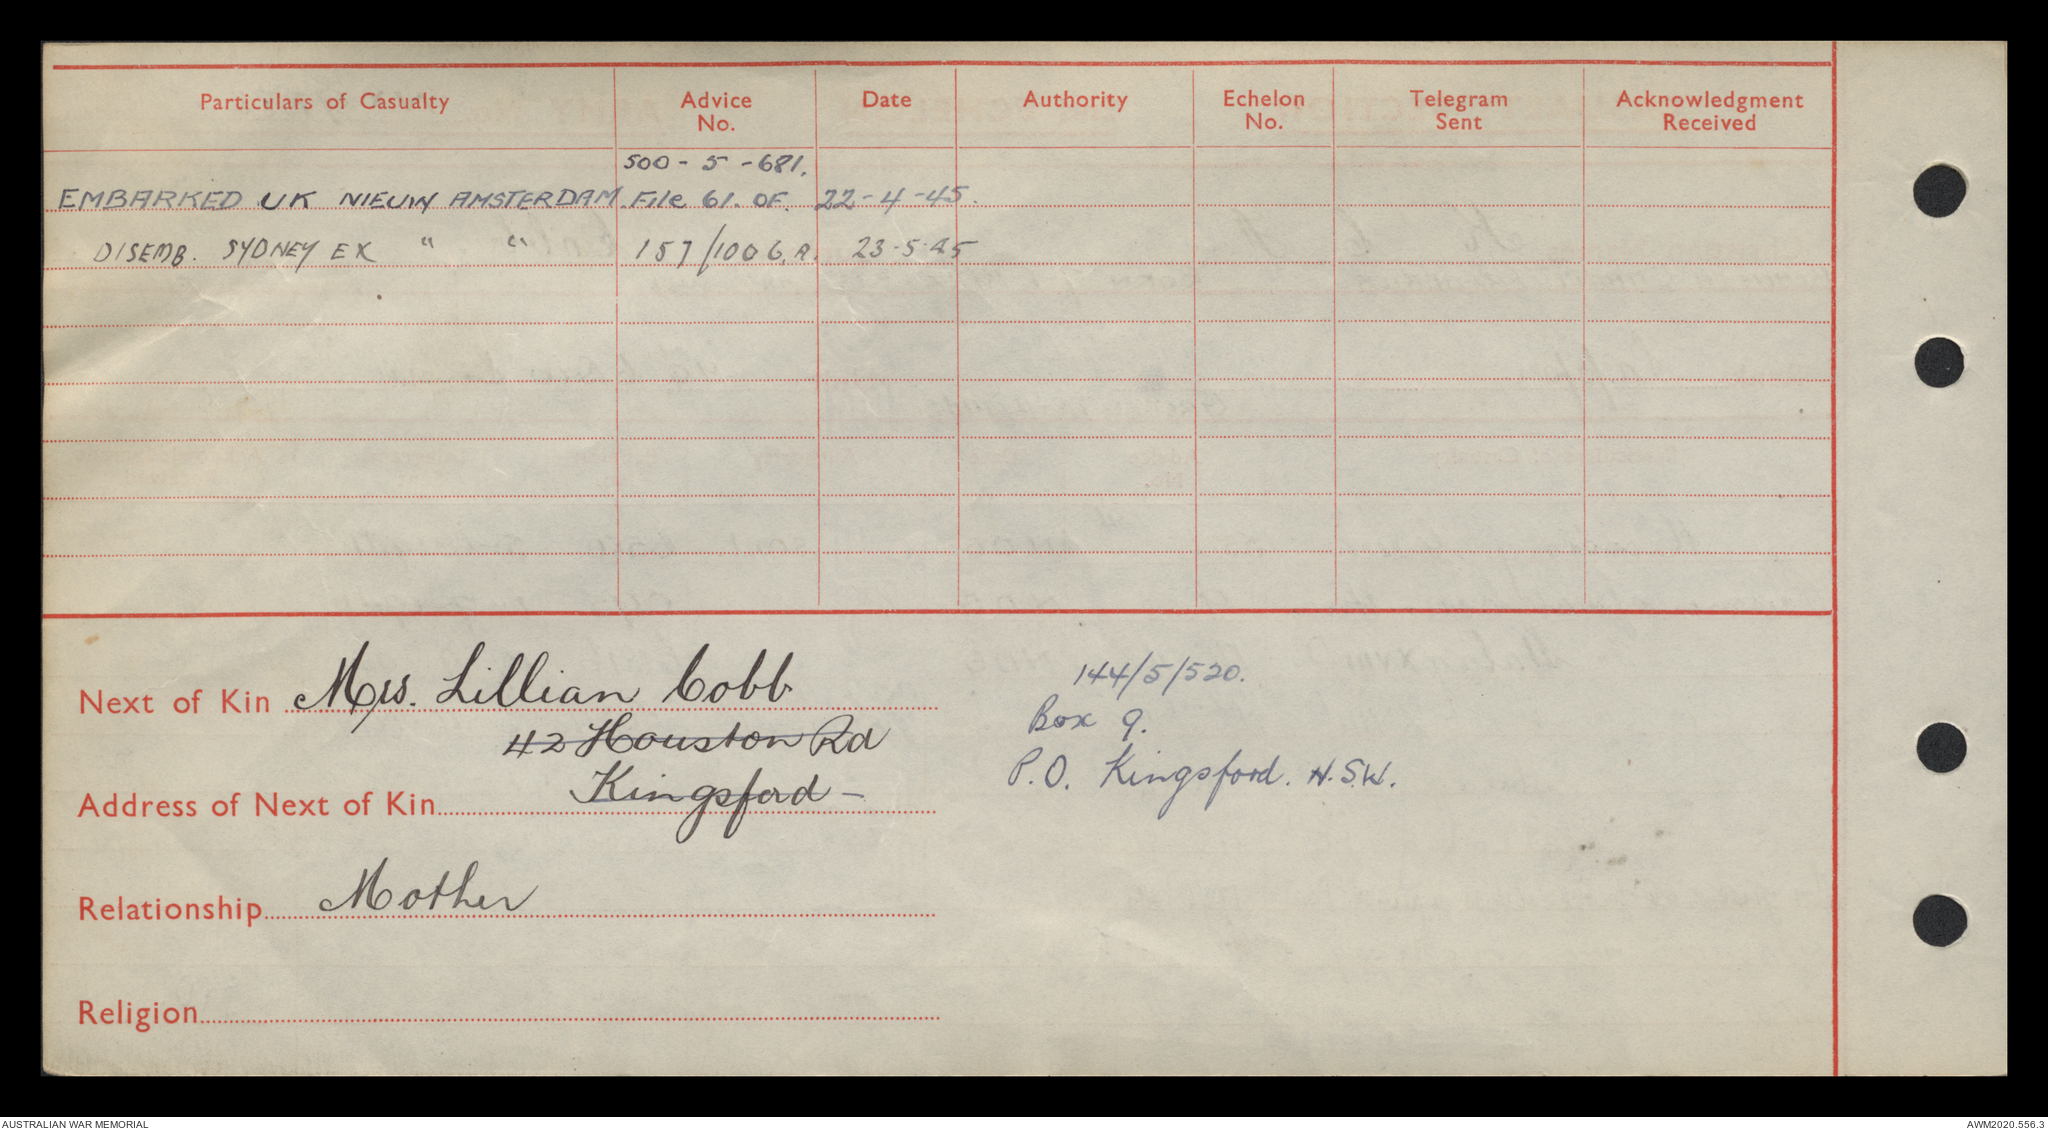 Particulars of Casualty Advice No. Date Authority Echelon No. Telegram Sent Acknowledgment Received
500-5-681.
EMBARKED UK NIEUW AMSTERDAM. File 61. OF. 22-4-45.
DISEMB. SYDNEY EX " " 157/1006.A. 23-5-45
Next of Kin Mrs. Lillian Cobb
42 Houston Rd
Address of Next of Kin Kingsford -
144/5/520.
Box 9.
P.O. Kingsford. N.S.W.
Relationship Mother
Religion
AUSTRALIAN WAR MEMORIAL
AWM2020.556.3